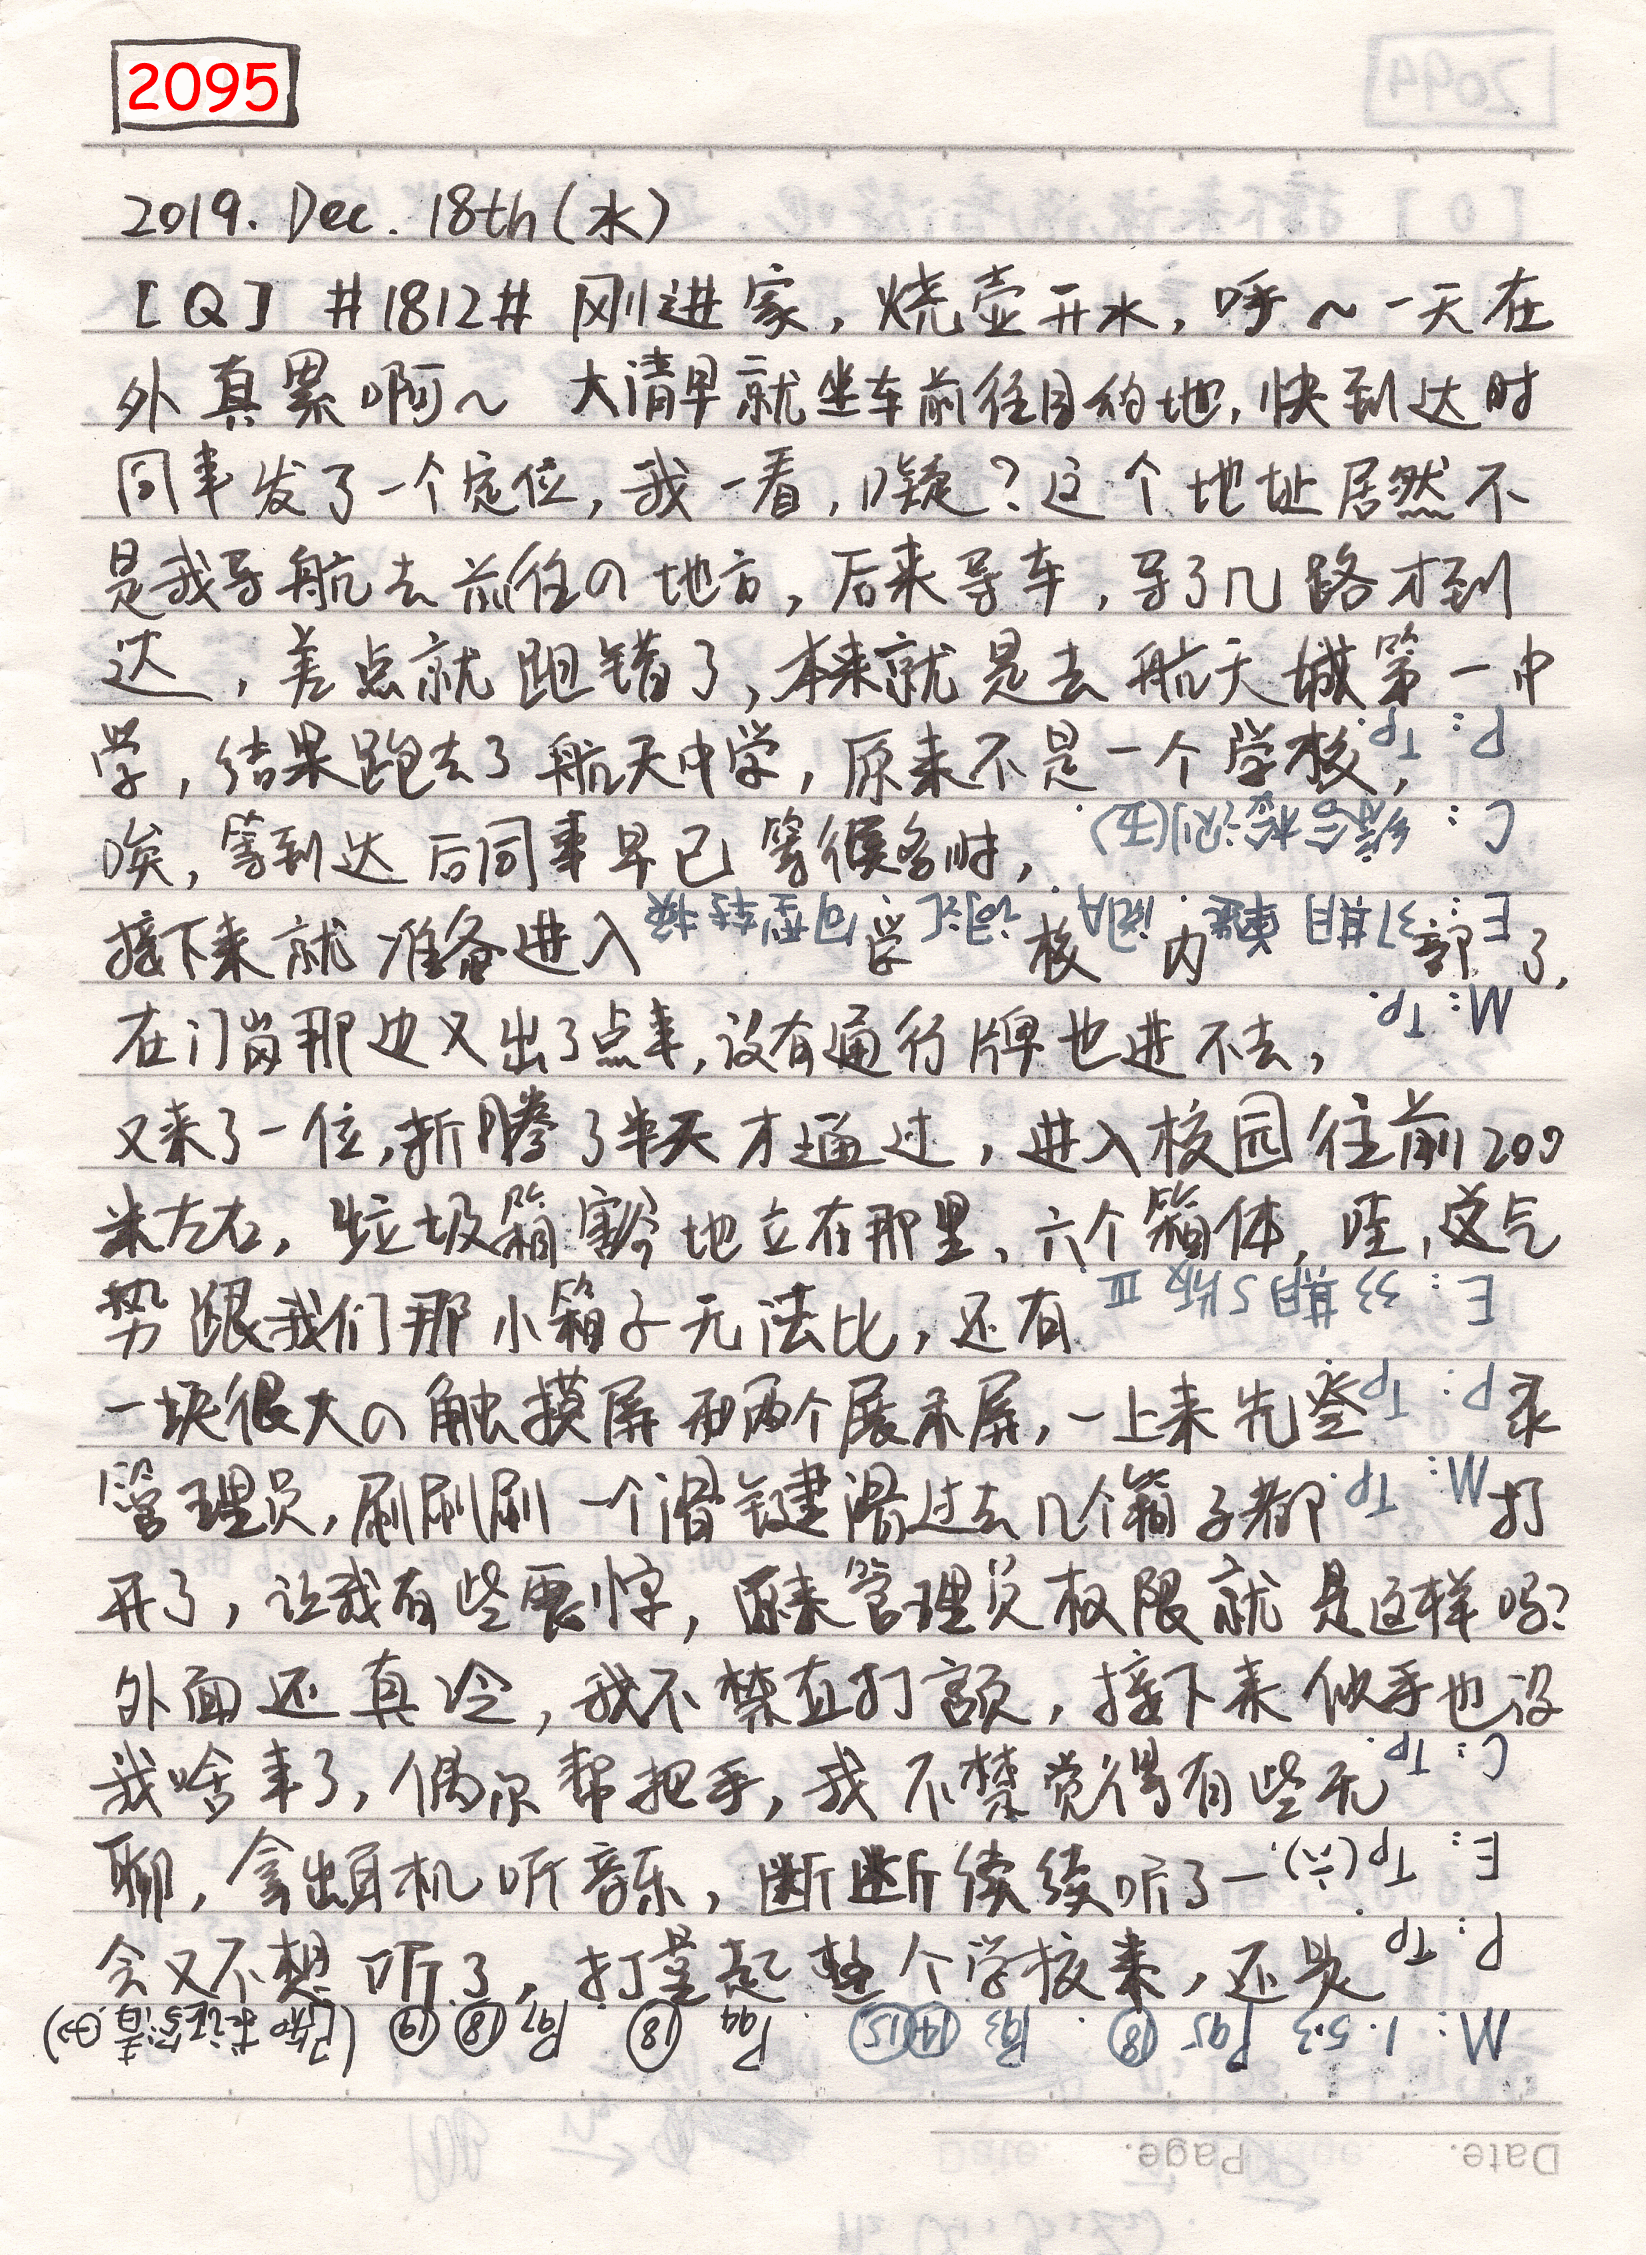 2095
2019. Dec. 18th (水)
[Q] #1812# 刚进家，烧壶开水，呼～一天在
外真累啊～ 大清早就坐车前往目的地，快到达时
同事发了一个定位，我一看，嚸？这个地址居然不
是我导航去前往の地方，后来导车，导了几路才到
达，差点就跑错了，本来就是去航天城第一中
学，结果跑去了航天中学，原来不是一个学校，
P: Tp.
唉，等到达后同事早已等候多时，
C: 综合检测(五)
接下来就准备进入学校内部了，
E: 37期 阅A. 词汇 句型转换
在门岗那边又出了点事，没有通行牌也进不去，
M: Tp.
又来了一位，折腾了半天才通过，进入校园往前200
米左右，垃圾箱地立在那里，六个箱体，哇，这气
势跟我们那小箱子无法比，还有
E: 33期 5版 Ⅲ
一块很大の触摸屏和两个展示屏，一上来先登录
P: Tp.
管理员，刷刷刷一个滑键滑过去几个箱子都打
M: Tp.
开了，让我有些震惊，原来管理员权限就是这样吗？
外面还真冷，我不禁直打颤，接下来似乎也没
我啥事了，偶尔帮把手，我不禁觉得有些无
C: Tp.
聊，拿出耳机听音乐，断断续续听了一
E: Tp(六).
会又不想听了，打量起整个学校来，还是
P: Tp.
M: 1. 5.3 P95 ⑱. P93 ⑭⑮ P94 ⑱ P97 ⑱ ⑲
Date. Page.